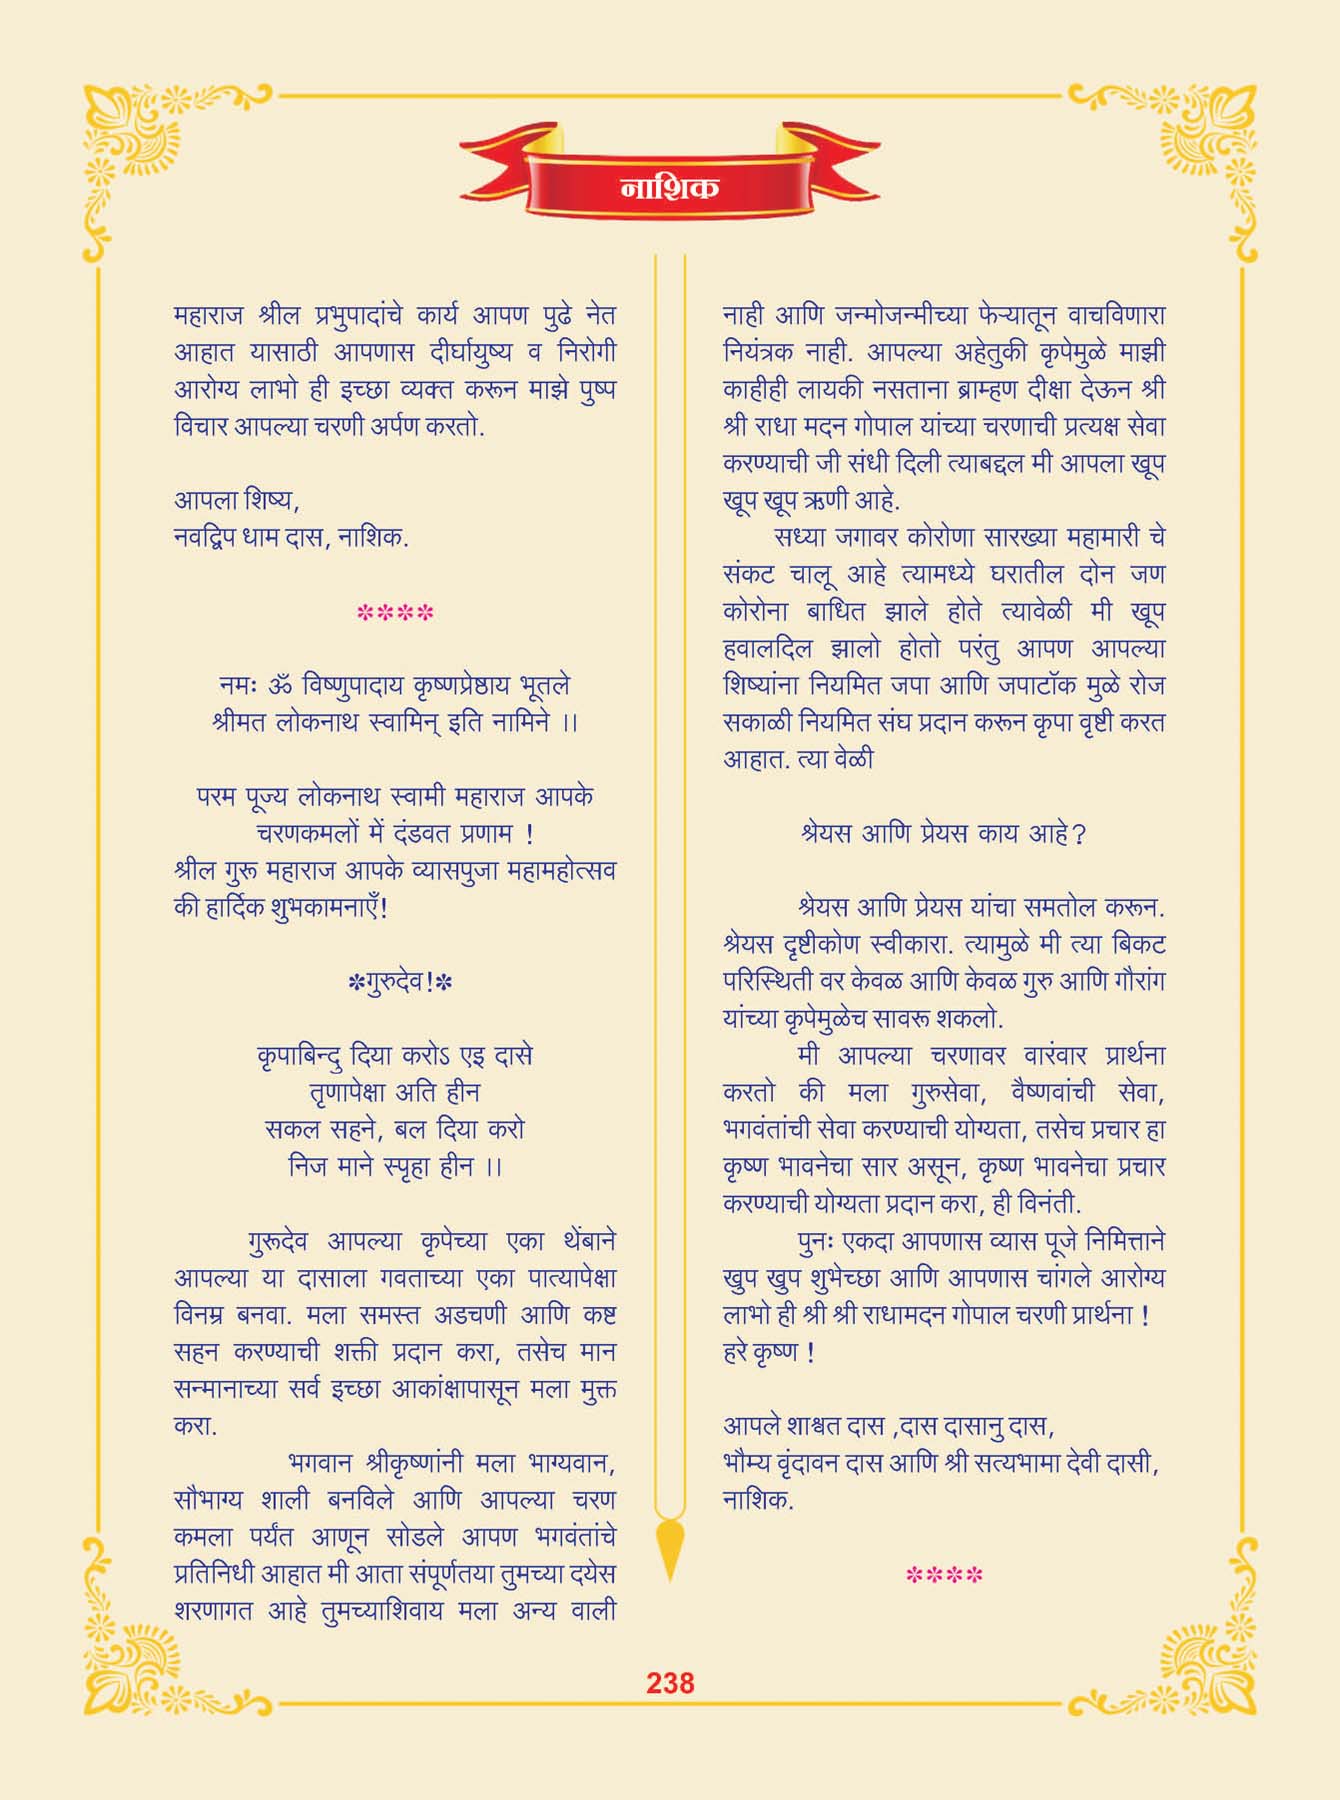 नाशिक
महाराज श्रील प्रभुपादांचे कार्य आपण पुढे नेत
आहात यासाठी आपणास दीर्घायुष्य व निरोगी
आरोग्य लाभो ही इच्छा व्यक्त करून माझे पुष्प
विचार आपल्या चरणी अर्पण करतो.
आपला शिष्य,
नवद्विप धाम दास, नाशिक.
****
नमः ॐ विष्णुपादाय कृष्णप्रेष्ठाय भूतले
श्रीमत लोकनाथ स्वामिन् इति नामिने ।।
परम पूज्य लोकनाथ स्वामी महाराज आपके
चरणकमलों में दंडवत प्रणाम !
श्रील गुरू महाराज आपके व्यासपुजा महामहोत्सव
की हार्दिक शुभकामनाएँ!
*गुरुदेव!*
कृपाबिन्दु दिया करोऽ एइ दासे
तृणापेक्षा अति हीन
सकल सहने, बल दिया करो
निज माने स्पृहा हीन ।।
गुरूदेव आपल्या कृपेच्या एका थेंबाने
आपल्या या दासाला गवताच्या एका पात्यापेक्षा
विनम्र बनवा. मला समस्त अडचणी आणि कष्ट
सहन करण्याची शक्ती प्रदान करा, तसेच मान
सन्मानाच्या सर्व इच्छा आकांक्षापासून मला मुक्त
करा.
भगवान श्रीकृष्णांनी मला भाग्यवान,
सौभाग्य शाली बनविले आणि आपल्या चरण
कमला पर्यंत आणून सोडले आपण भगवंतांचे
प्रतिनिधी आहात मी आता संपूर्णतया तुमच्या दयेस
शरणागत आहे तुमच्याशिवाय मला अन्य वाली
नाही आणि जन्मोजन्मीच्या फेऱ्यातून वाचविणारा
नियंत्रक नाही. आपल्या अहेतुकी कृपेमुळे माझी
काहीही लायकी नसताना ब्राम्हण दीक्षा देऊन श्री
श्री राधा मदन गोपाल यांच्या चरणाची प्रत्यक्ष सेवा
करण्याची जी संधी दिली त्याबद्दल मी आपला खूप
खूप खूप ऋणी आहे.
सध्या जगावर कोरोणा सारख्या महामारी चे
संकट चालू आहे त्यामध्ये घरातील दोन जण
कोरोना बाधित झाले होते त्यावेळी मी खूप
हवालदिल झालो होतो परंतु आपण आपल्या
शिष्यांना नियमित जपा आणि जपाटॉक मुळे रोज
सकाळी नियमित संघ प्रदान करून कृपा वृष्टी करत
आहात. त्या वेळी
श्रेयस आणि प्रेयस काय आहे?
श्रेयस आणि प्रेयस यांचा समतोल करून.
श्रेयस दृष्टीकोण स्वीकारा. त्यामुळे मी त्या बिकट
परिस्थिती वर केवळ आणि केवळ गुरु आणि गौरांग
यांच्या कृपेमुळेच सावरू शकलो.
मी आपल्या चरणावर वारंवार प्रार्थना
करतो की मला गुरुसेवा, वैष्णवांची सेवा,
भगवंतांची सेवा करण्याची योग्यता, तसेच प्रचार हा
कृष्ण भावनेचा सार असून, कृष्ण भावनेचा प्रचार
करण्याची योग्यता प्रदान करा, ही विनंती.
पुनः एकदा आपणास व्यास पूजे निमित्ताने
खुप खुप शुभेच्छा आणि आपणास चांगले आरोग्य
लाभो ही श्री श्री राधामदन गोपाल चरणी प्रार्थना !
हरे कृष्ण !
आपले शाश्वत दास ,दास दासानु दास,
भौम्य वृंदावन दास आणि श्री सत्यभामा देवी दासी,
नाशिक.
****
238